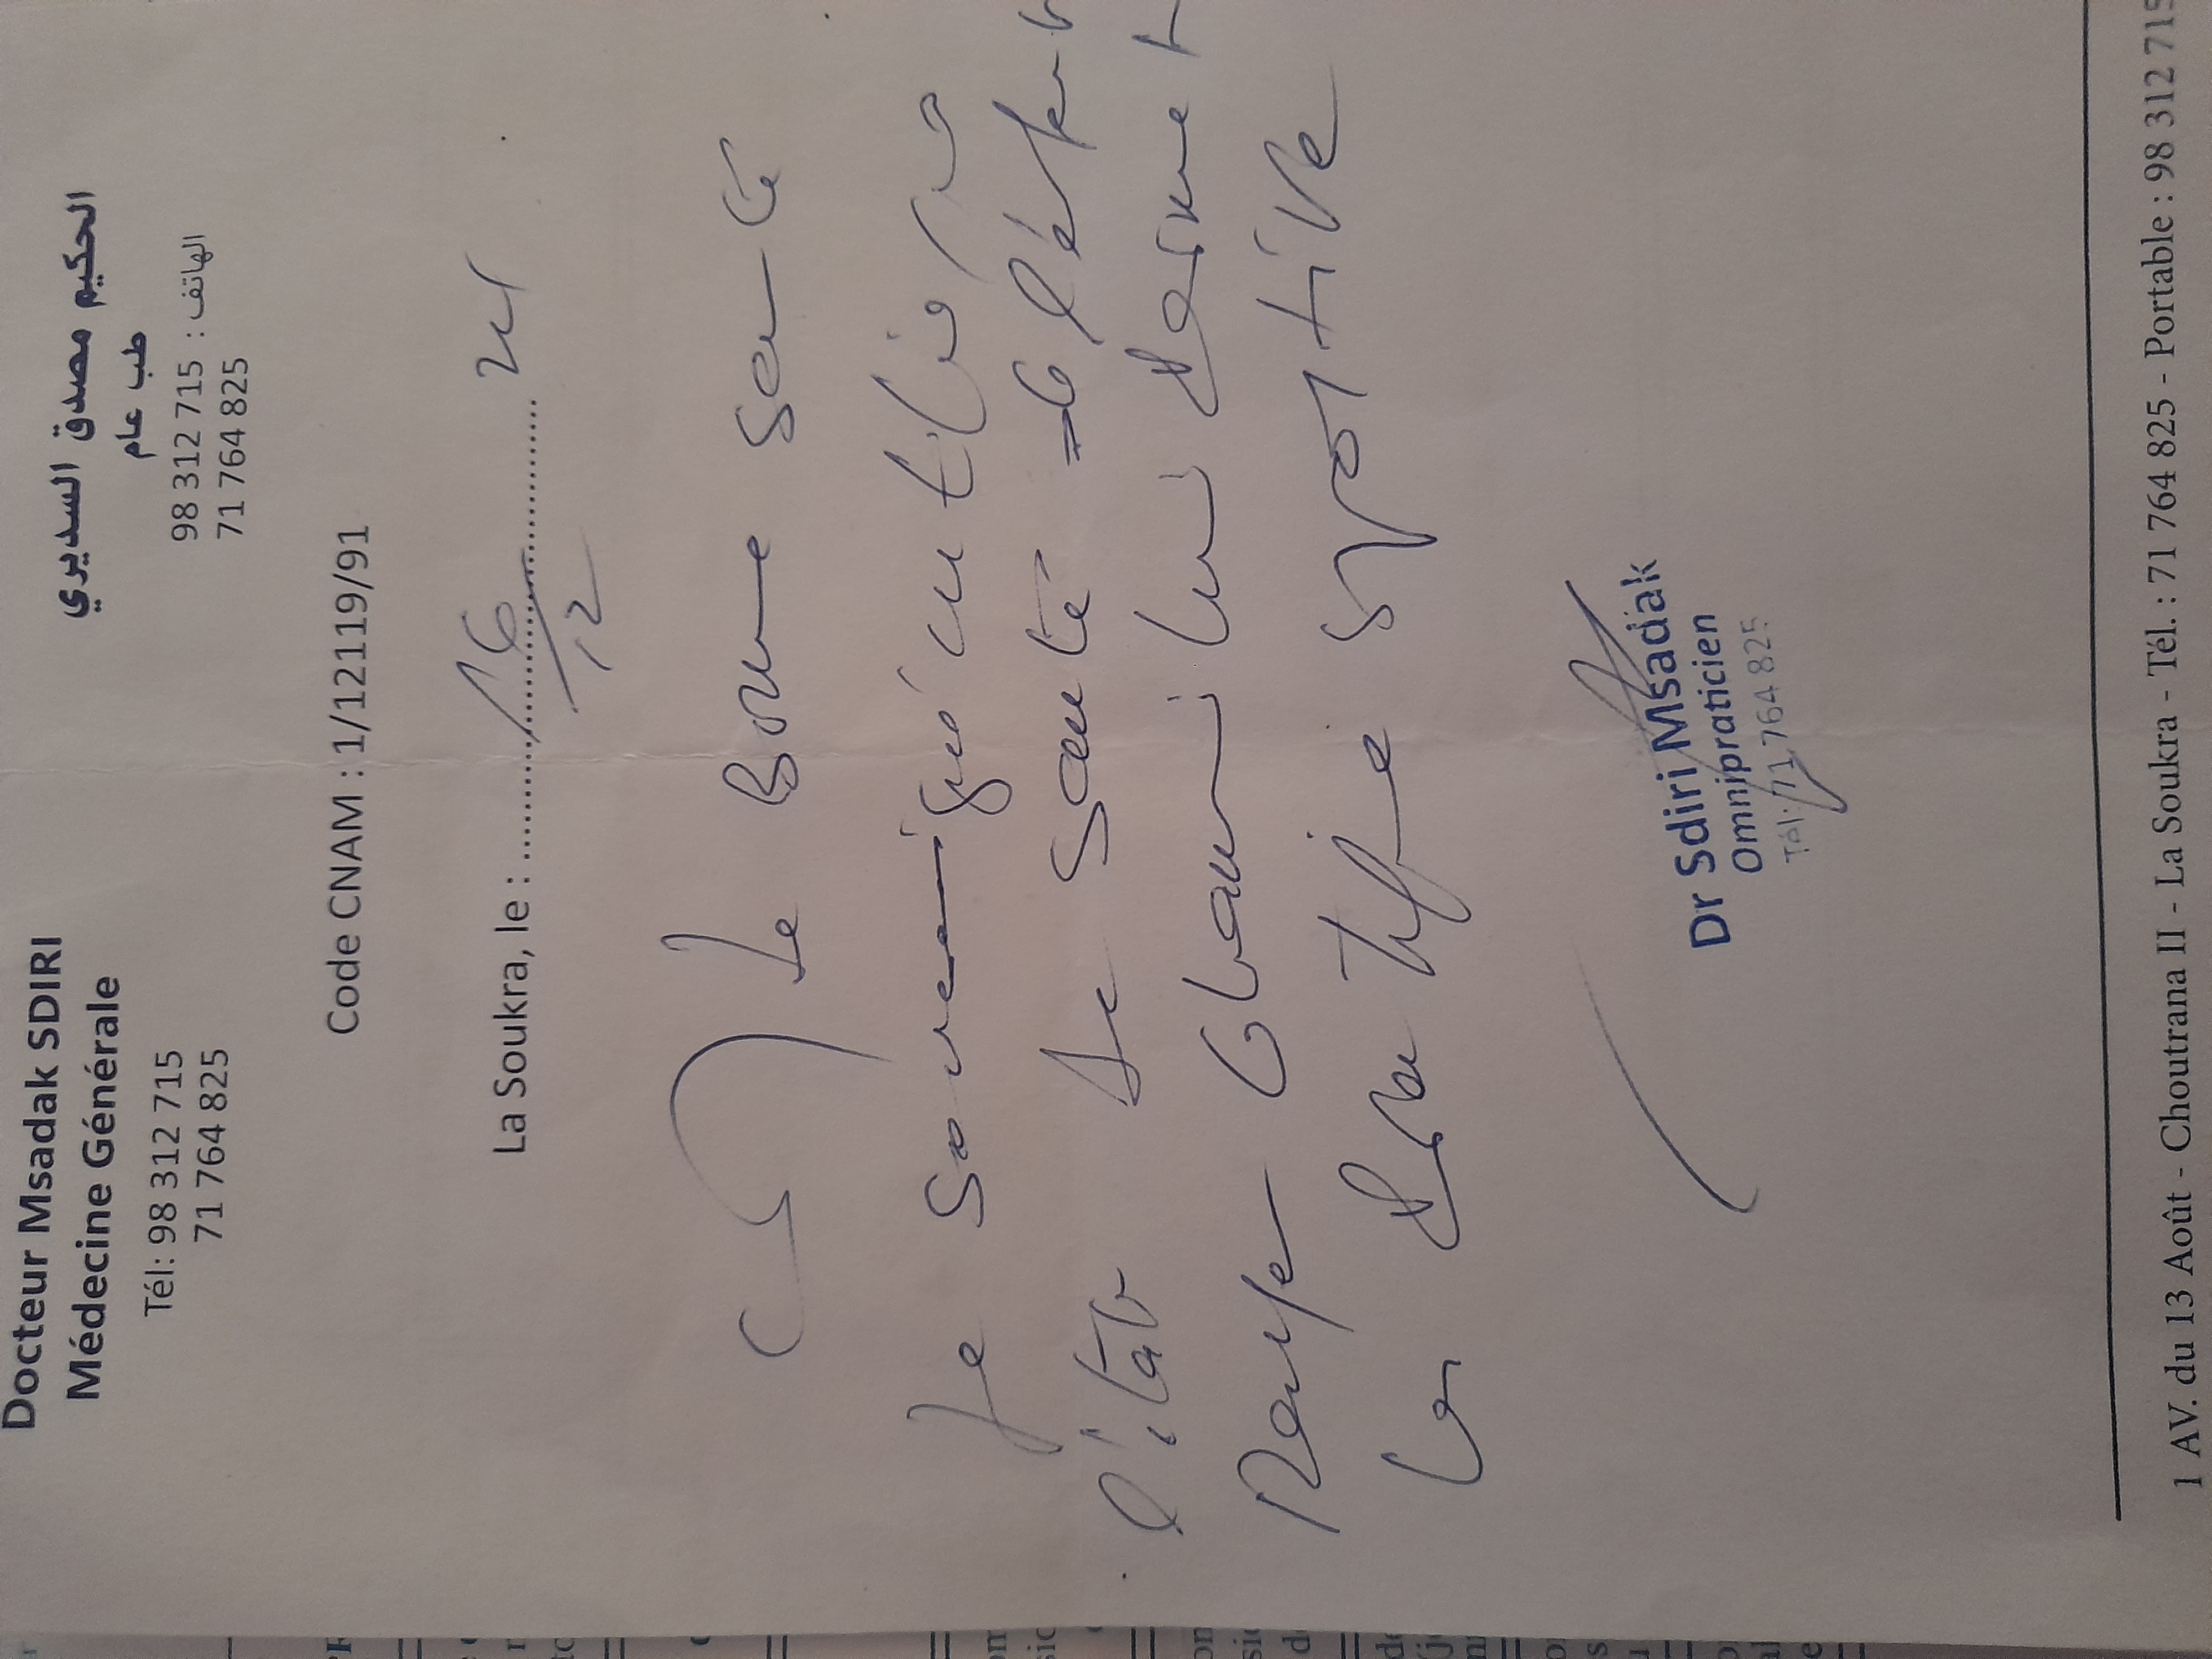 Docteur Msadak SDIRI
Médecine Générale
Tél: 98 312 715
71 764 825
الحكيم مصدق السديري
طب عام
الهاتف : 98 312 715
71 764 825
Code CNAM : 1/12119/91
La Soukra, le : 16/12 24
de Bonne Santé
Je soussigné certifie
l'état de santé
lui permet
la pratique sportive
Dr Sdiri Msadak
Omnipraticien
Tél: 71 764 825
1 AV. du 13 Août - Choutrana II - La Soukra - Tél. : 71 764 825 - Portable : 98 312 715